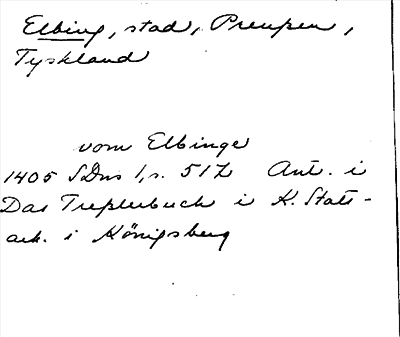 Elbing, stad, Preussen,
Tyskland
vom Elbinge
1405 SDns 1, s. 517 Ant. i
Das Tresslerbuch i K. Stats-
ark. i Königsberg